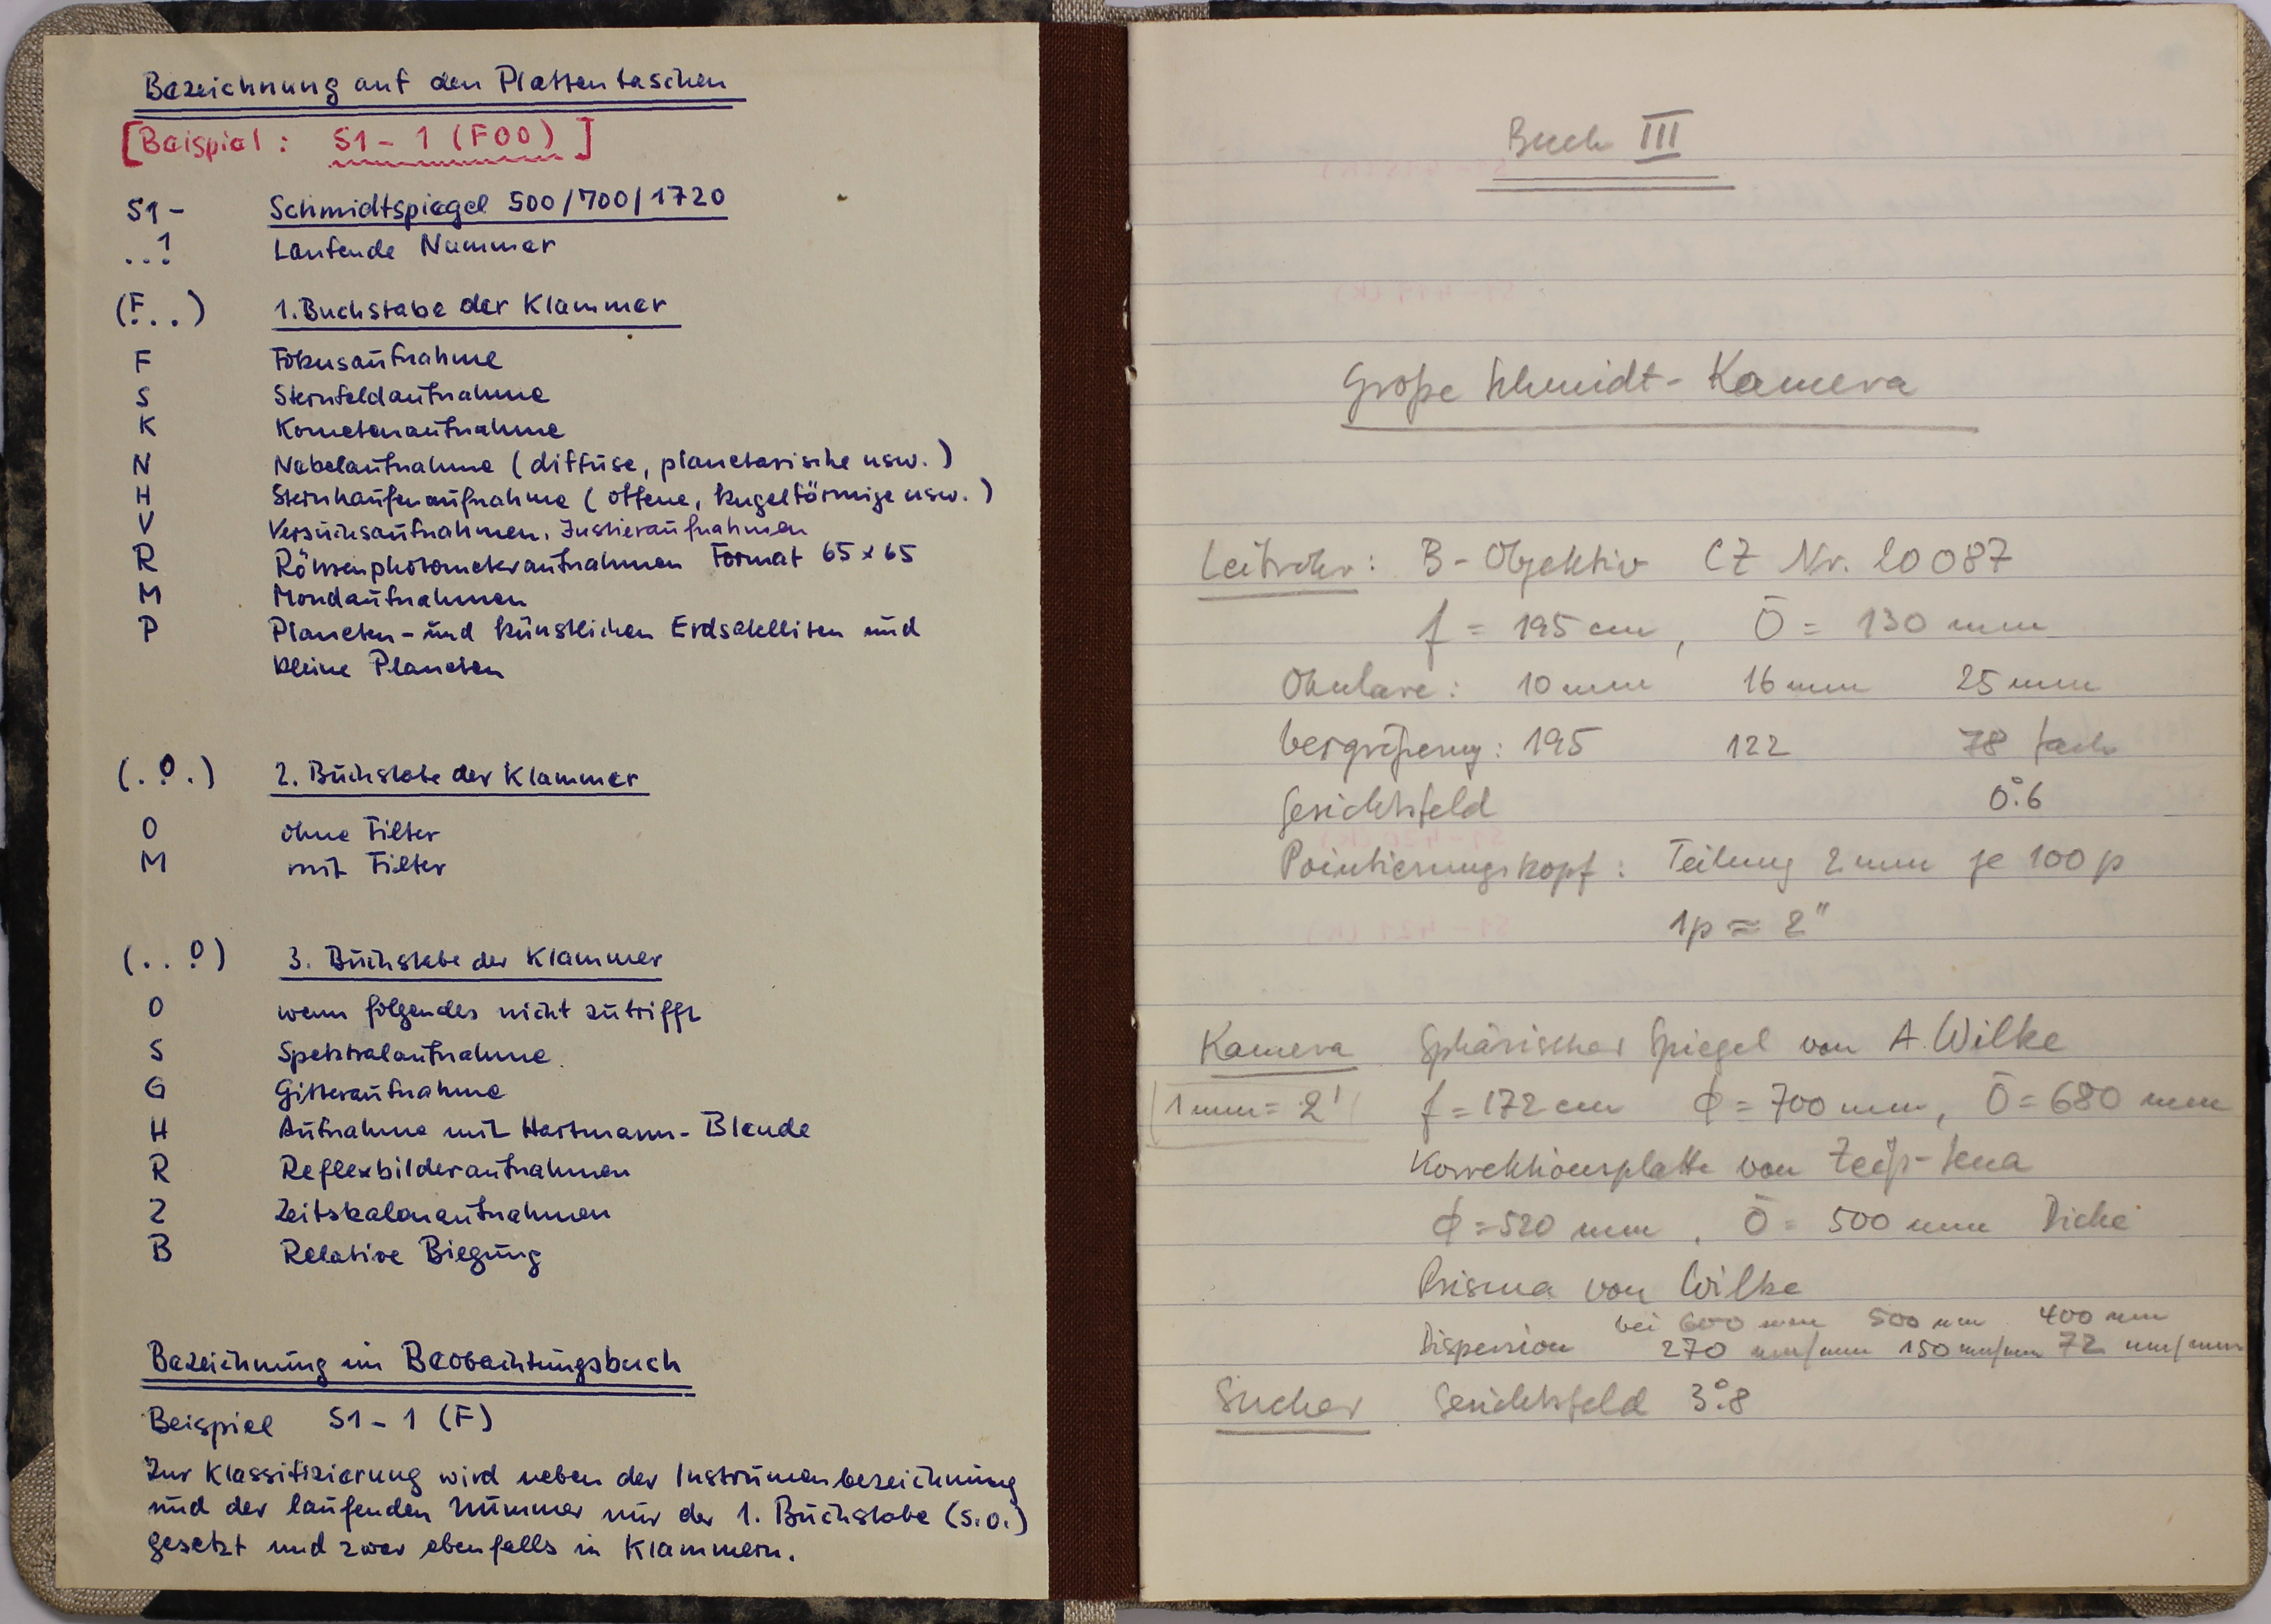 Bezeichnung auf den Plattentaschen
[Beispiel: S1 - 1 (F00)]
S1 - Schmidtspiegel 500/700/1720
..1 Laufende Nummer
(F..) 1. Buchstabe der Klammer
F Fokusaufnahme
S Sternfeldaufnahme
K Kometenaufnahme
N Nebelaufnahme (diffuse, planetarische usw.)
H Sternhaufenaufnahme (offene, kugelförmige usw.)
V Versuchsaufnahmen, Justieraufnahmen
R Röhrenphotometeraufnahmen Format 65 x 65
M Mondaufnahmen
P Planeten- und künstlichen Erdsatelliten und
kleine Planeten
(.0.) 2. Buchstabe der Klammer
0 ohne Filter
M mit Filter
(..0) 3. Buchstabe der Klammer
0 wenn folgendes nicht zutrifft
S Spektralaufnahme
G Gitteraufnahme
H Aufnahme mit Hartmann-Blende
R Reflexbilderaufnahmen
Z Zeitskalenaufnahmen
B Relative Biegung
Bezeichnung im Beobachtungsbuch
Beispiel S1 - 1 (F)
Zur Klassifizierung wird neben der Instrumenbezeichnung
und der laufenden Nummer nur der 1. Buchstabe (s.o.)
gesetzt und zwar ebenfalls in Klammern.
Buch III
Große Schmidt-Kamera
Leitrohr: B-Objektiv CZ Nr. 20087
f = 195 cm, Ö = 130 mm
Okulare: 10 mm 16 mm 25 mm
Vergrößerung: 195 122 78 fach
Gesichtsfeld 0°.6
Pointierungskopf: Teilung 2 mm je 100 p
1p ≈ 2"
Kamera Sphärischer Spiegel von A. Wilke
1 mm = 2' f = 172 cm ϕ = 700 mm, Ö = 680 mm
Korrektionsplatte von Zeiß-Jena
ϕ = 520 mm, Ö = 500 mm Dicke
Prisma von Wilke
bei 600 nm 500 nm 400 nm
Dispersion 270 nm/mm 150 nm/mm 72 nm/mm
Sucher Gesichtsfeld 3°.8